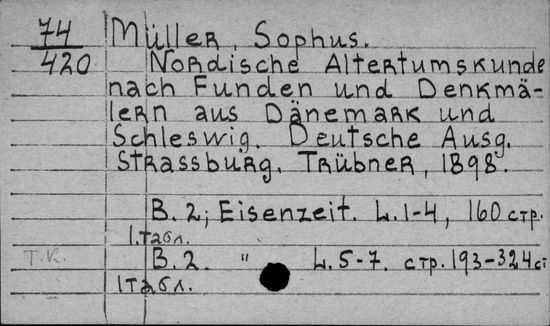 74
420
Müller, Sophus.
Nordische Altertumskunde
nach Funden und Denkmä-
lern aus Dänemark und
Schleswig. Deutsche Ausg.
Strassburg, Trübner, 1898.
B. 2; Eisenzeit. L. 1-4, 160 стр.
1 табл.
T.K.
B. 2. " L. 5-7. стр. 193-324 ст
1 табл.